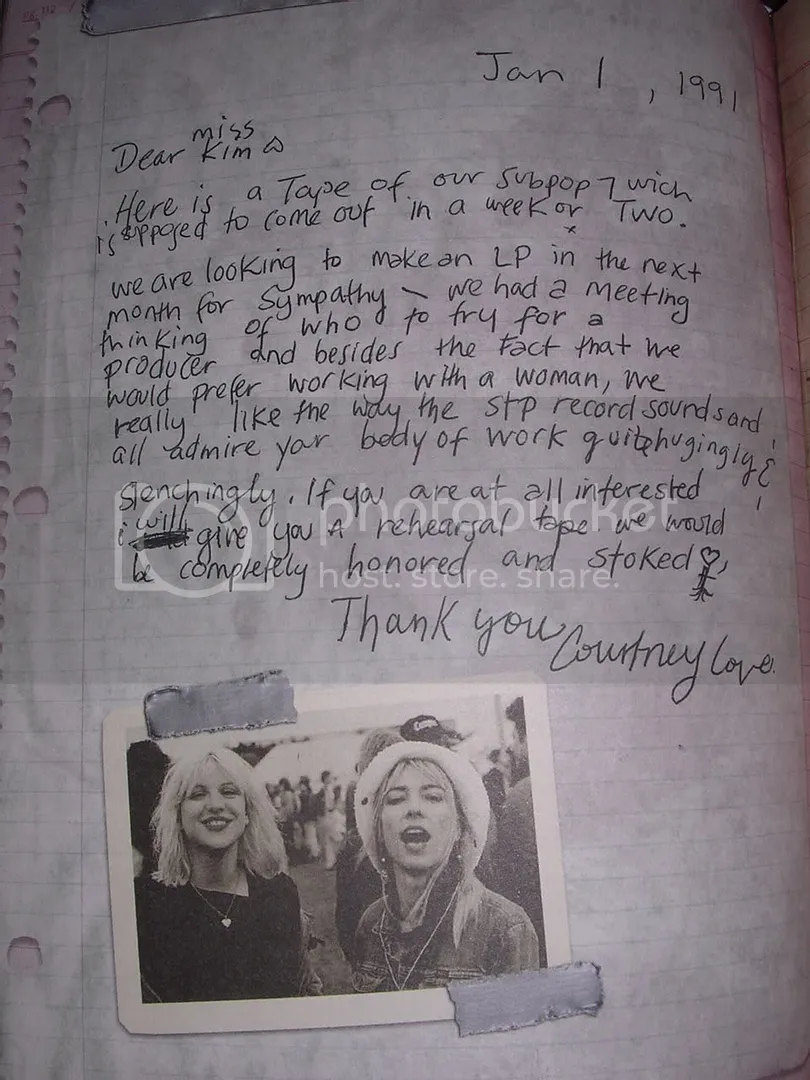 Jan 1, 1991
Dear miss Kim
Here is a Tape of our Subpop 7 wich
is suppoged to come out in a week or Two.
we are looking to make an LP in the next
month for Sympathy – we had a meeting
thinking of who to try for a
producer and besides the fact that we
would prefer working with a woman, we
really like the way the STP record sounds and
all admire your body of work quite hugingly &
glenchingly. If you are at all interested
i will give you A rehearsal tape we would
be completely honored and stoked,
Thank you Courtney Love.
photobucket
host. store. share.